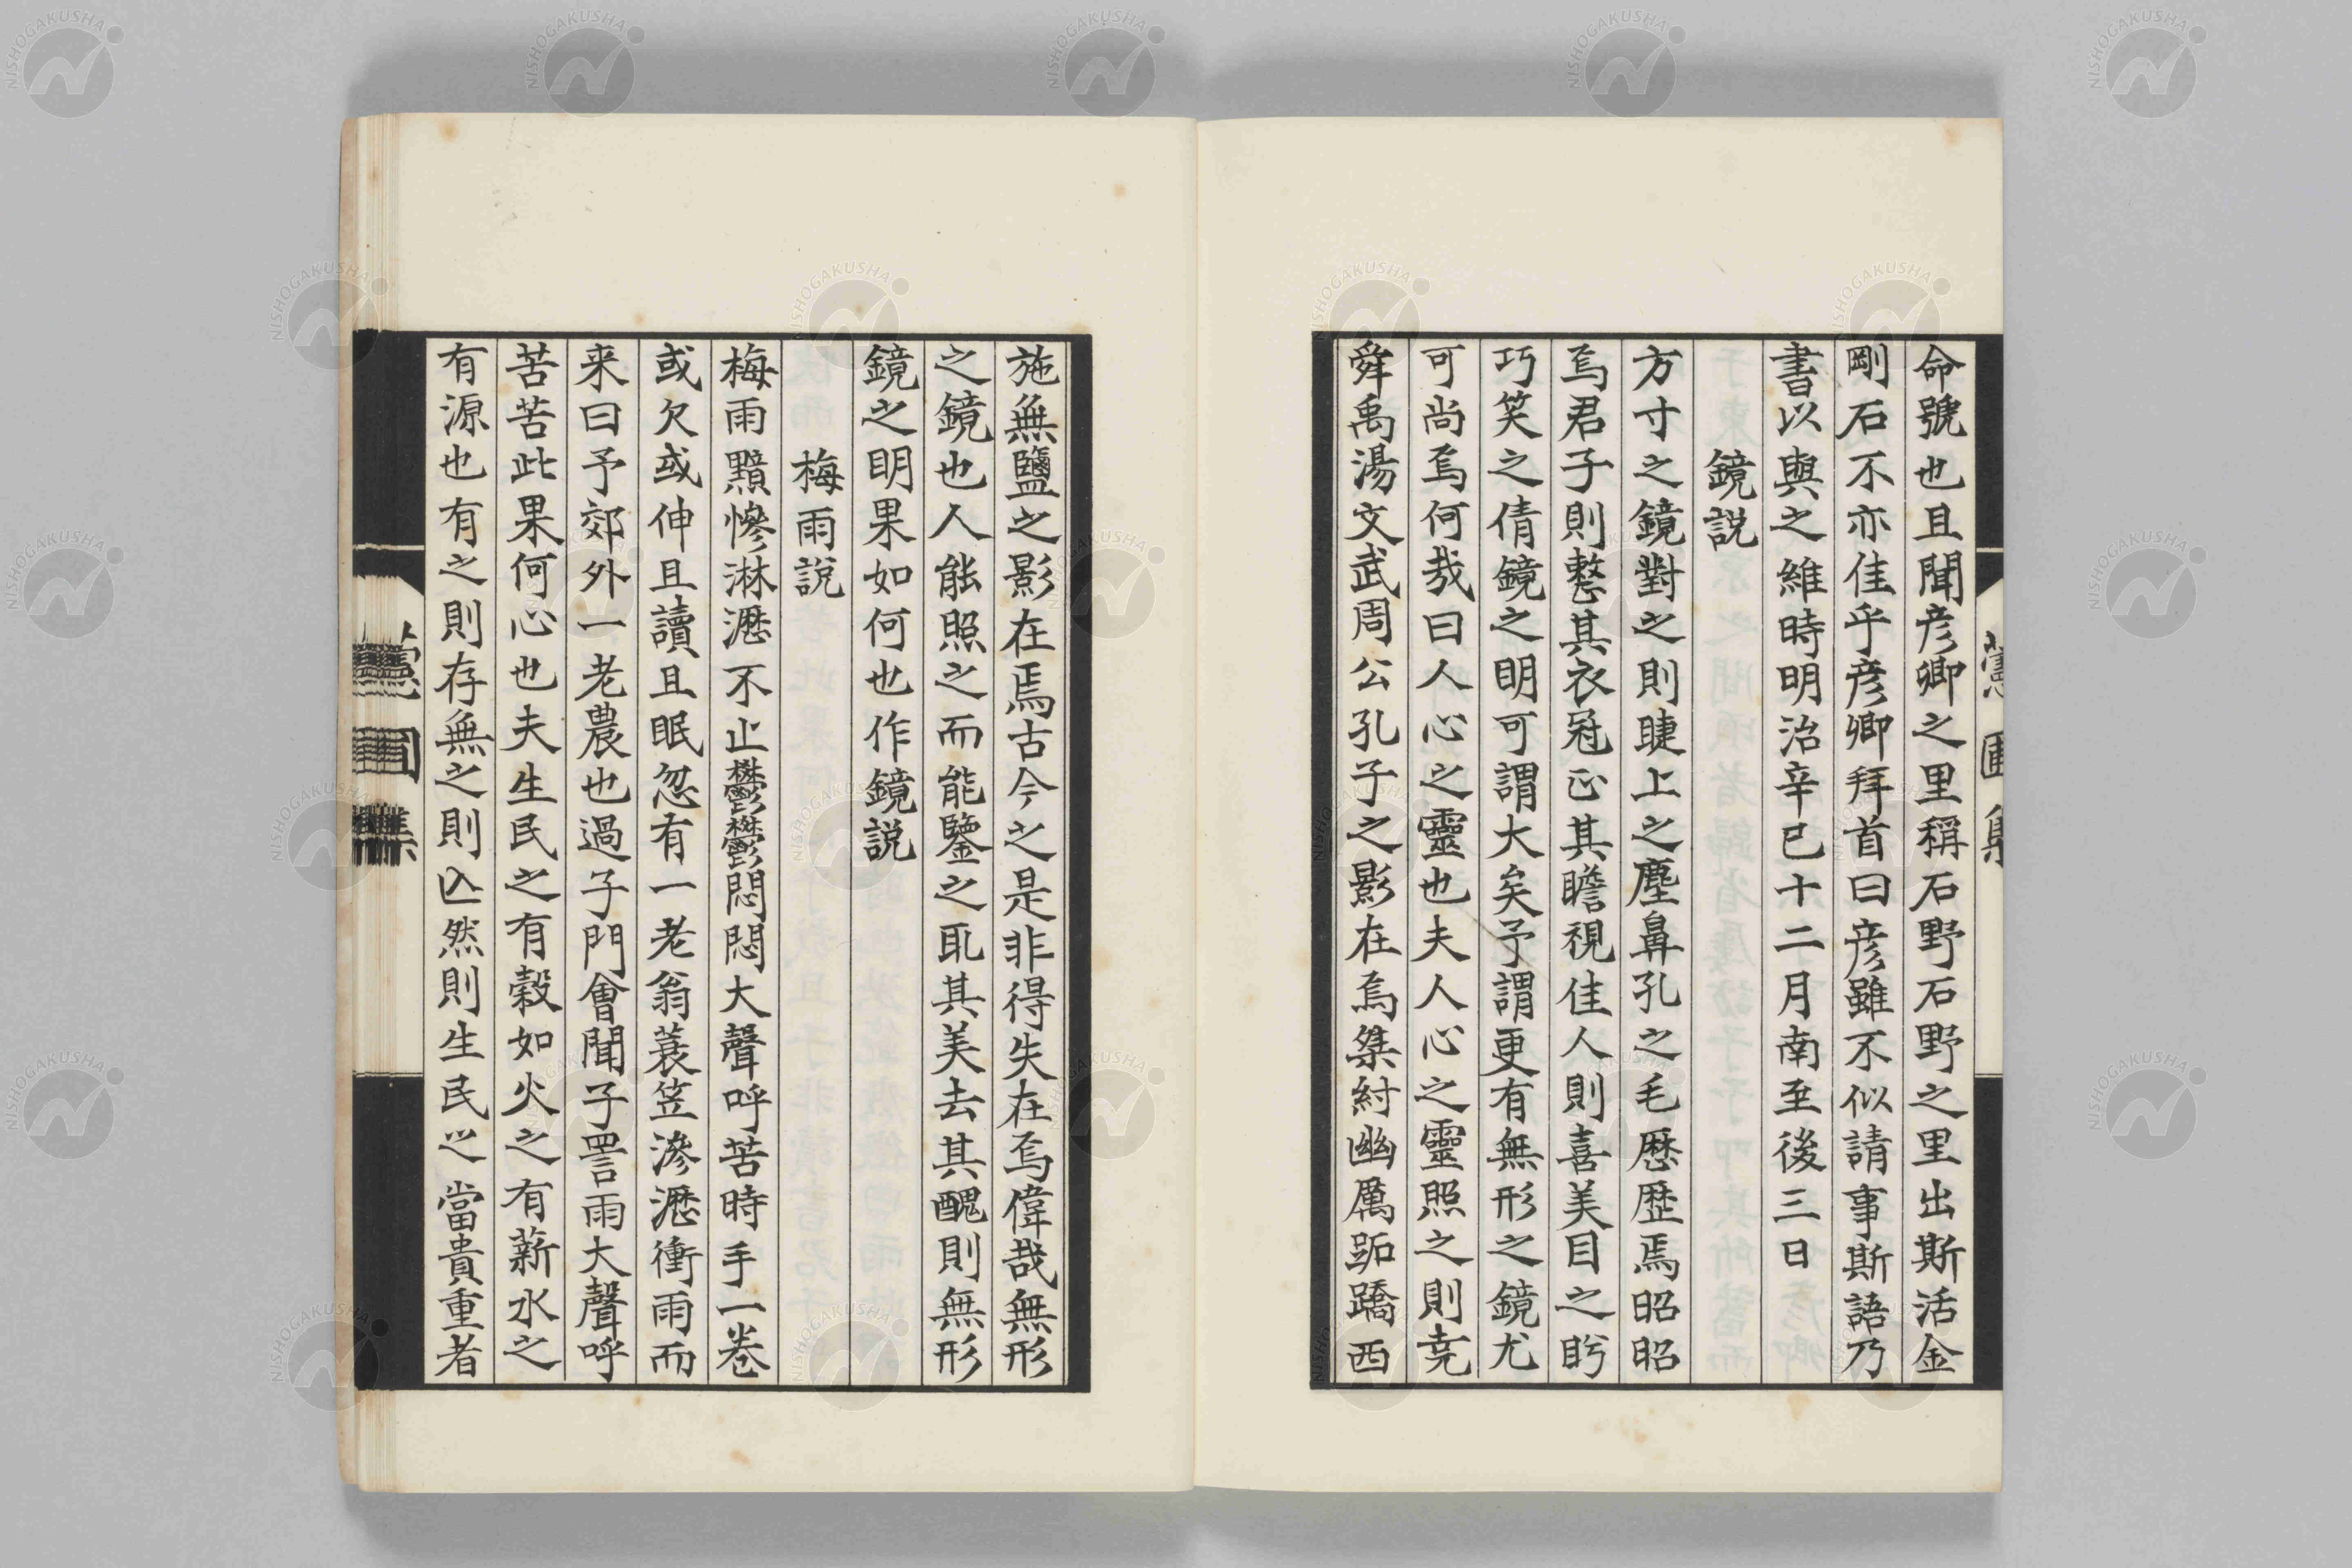 命號也且聞彦卿之里稱石野石野之里出斯活金
剛石不亦佳乎彦卿拜首曰彦雖不似請事斯語乃
書以與之維時明治辛巳十二月南至後三日
鏡説
方寸之鏡對之則睫上之塵鼻孔之毛歴歴焉昭昭
焉君子則整其衣冠正其瞻視佳人則喜美目之盻
巧笑之倩鏡之明可謂大矣予謂更有無形之鏡尤
可尚焉何哉曰人心之靈也夫人心之靈照之則堯
舜禹湯文武周公孔子之影在焉桀紂幽厲跖蹻西
施無鹽之影在焉古今之是非得失在焉偉哉無形
之鏡也人能照之而能鑒之取其美去其醜則無形
鏡之明果如何也作鏡説
梅雨説
梅雨黯慘淋瀝不止欝欝悶悶大聲呼苦時手一巻
或欠或伸且讀且眠忽有一老翁蓑笠滲瀝衝雨而
来曰予郊外一老農也過子門會聞子詈雨大聲呼
苦苦此果何心也夫生民之有穀如火之有薪水之
有源也有之則存無之則亾然則生民之當貴重者
NISHOGAKUSHA